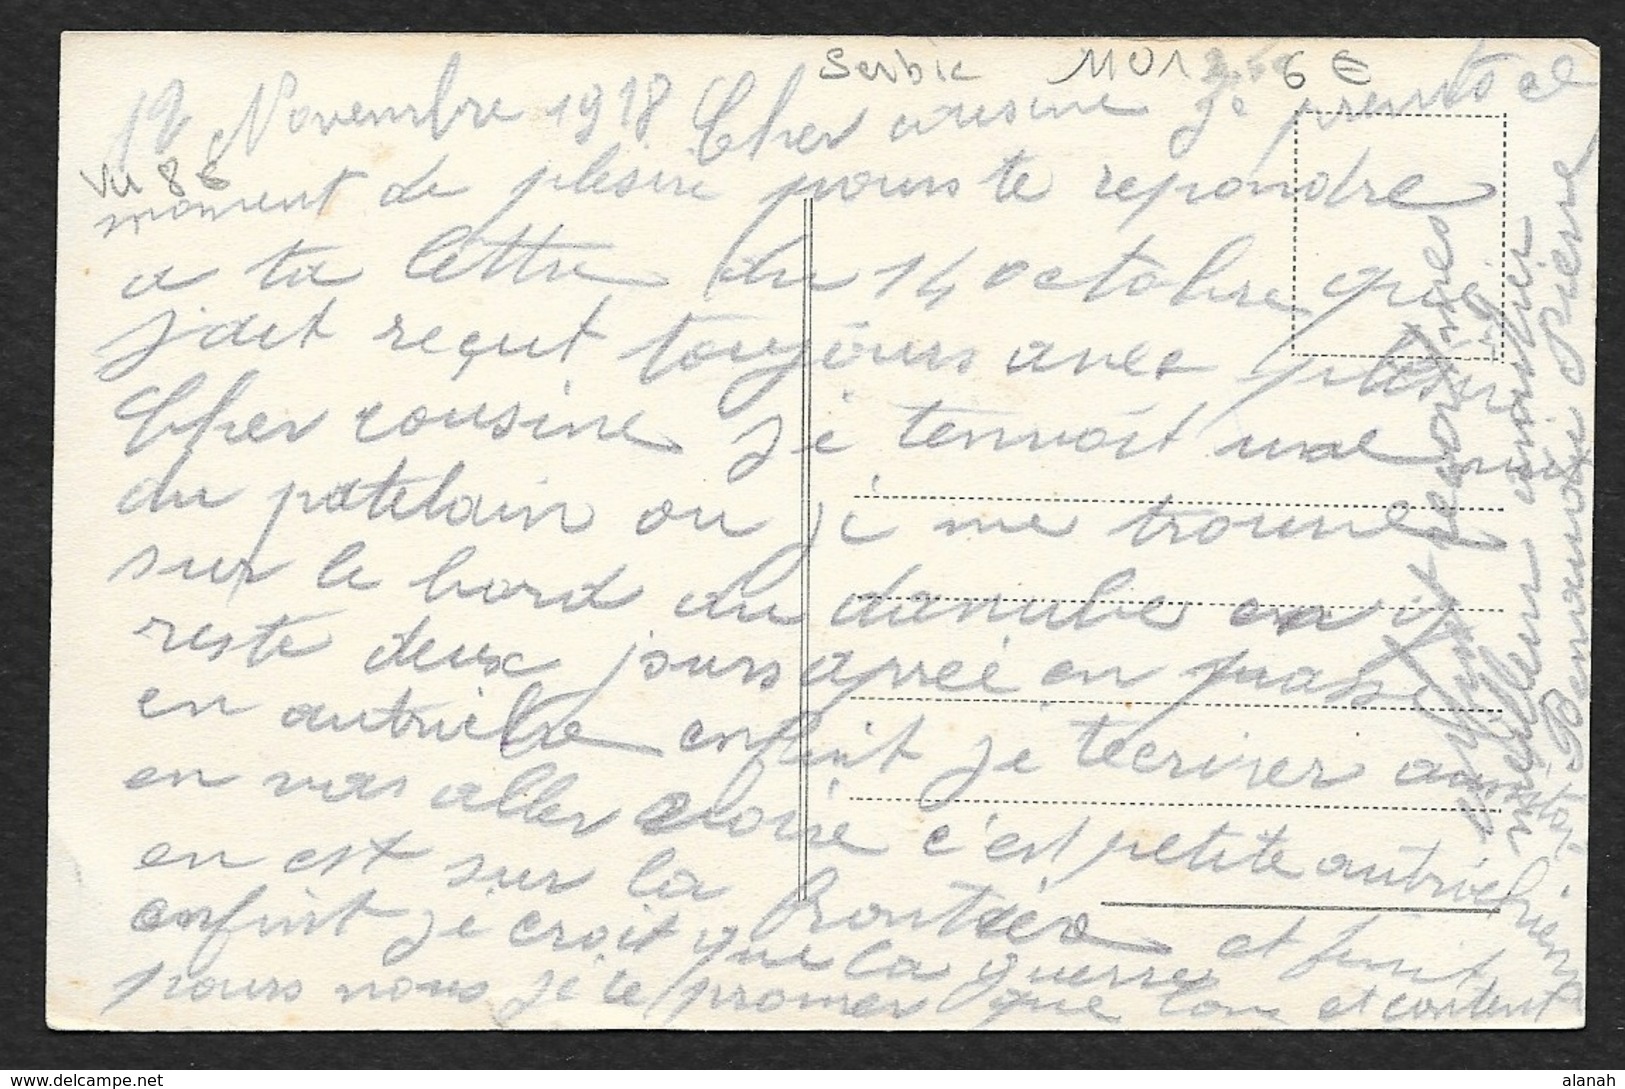 Serbie MU1 6 €
12 Novembre 1918 Cher cousine je prents ce
VM 86
moment de plesire pours te repondre
a ta lettre du 14 octobre que
j'ait reçut toujours avec plesir
Cher cousine je tenvoit une vue
du patelain ou je me trouve
sur le bord du danube on iy
reste deux jours apreé on passe
en autriche enfint je tecriver
en vas aller croire c'est petite autrichienne
on est sur la frontiére et
enfint je croit que la guerre finit
pours nous je te promer que lons et content
meilleur amitier
Pierre
alanah